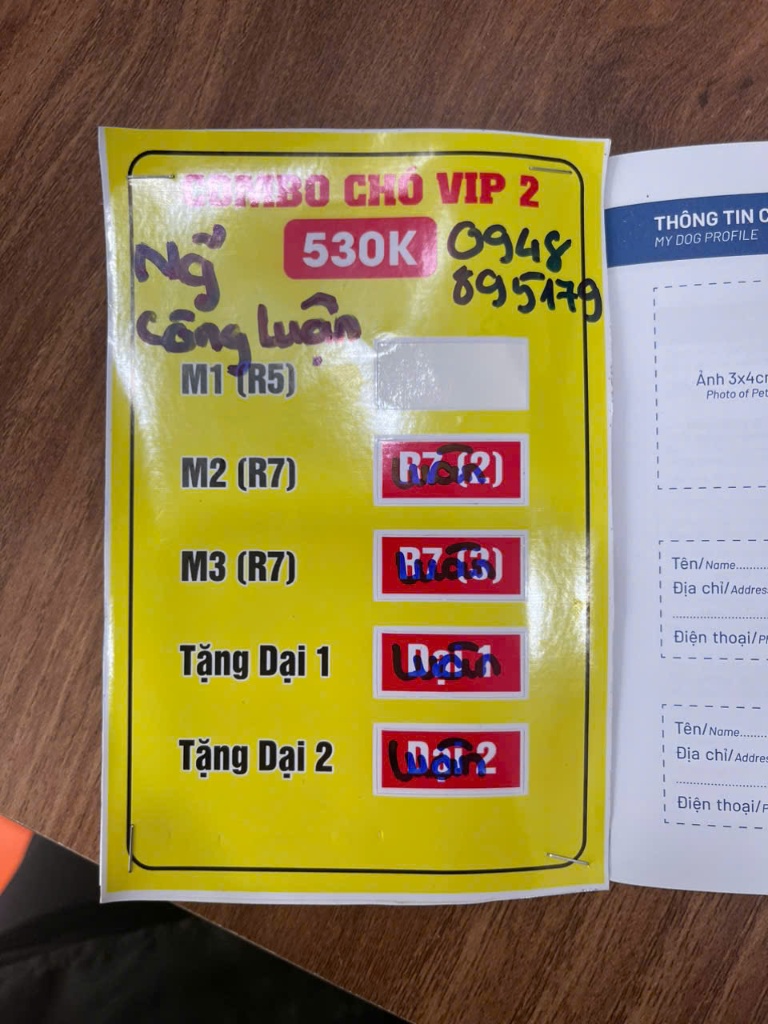 COMBO CHÓ VIP 2
530K
0948
895179
Ng~
Công Luận
M1 (R5)
M2 (R7)
R7 (2)
Luân
M3 (R7)
R7 (3)
Luân
Tặng Dại 1
Dại 1
Luân
Tặng Dại 2
Dại 2
Luận
THÔNG TIN C
MY DOG PROFILE
Ảnh 3x4c
Photo of Pet
Tên/Name
Địa chỉ/Address
Điện thoại/P
Tên/Name
Địa chỉ/Addres
Điện thoại/P